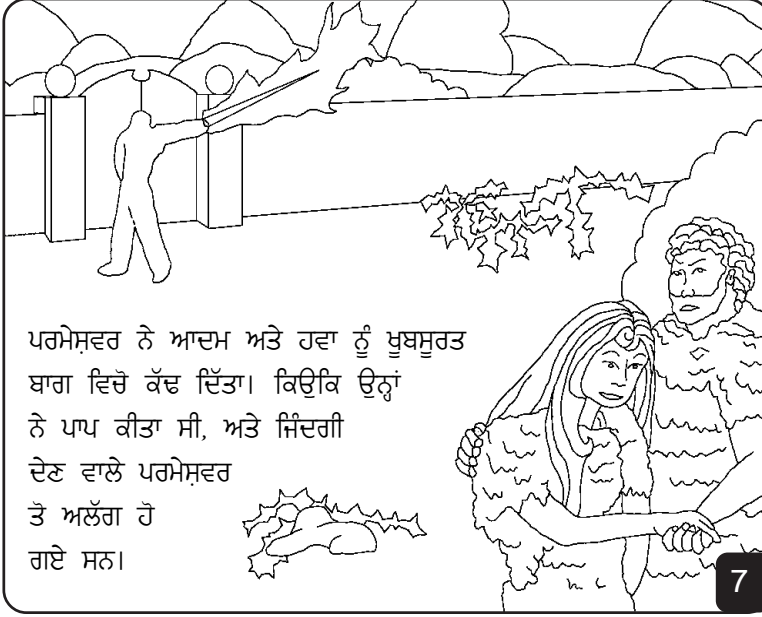 ਪਰਮੇਸ਼ਵਰ ਨੇ ਆਦਮ ਅਤੇ ਹਵਾ ਨੂੰ ਖੂਬਸੂਰਤ
ਬਾਗ ਵਿਚੋ ਕੱਢ ਦਿੱਤਾ। ਕਿਉਕਿ ਉਨ੍ਹਾਂ
ਨੇ ਪਾਪ ਕੀਤਾ ਸੀ, ਅਤੇ ਜਿੰਦਗੀ
ਦੇਣ ਵਾਲੇ ਪਰਮੇਸ਼ਵਰ
ਤੋ ਅਲੱਗ ਹੋ
ਗਏ ਸਨ।
7